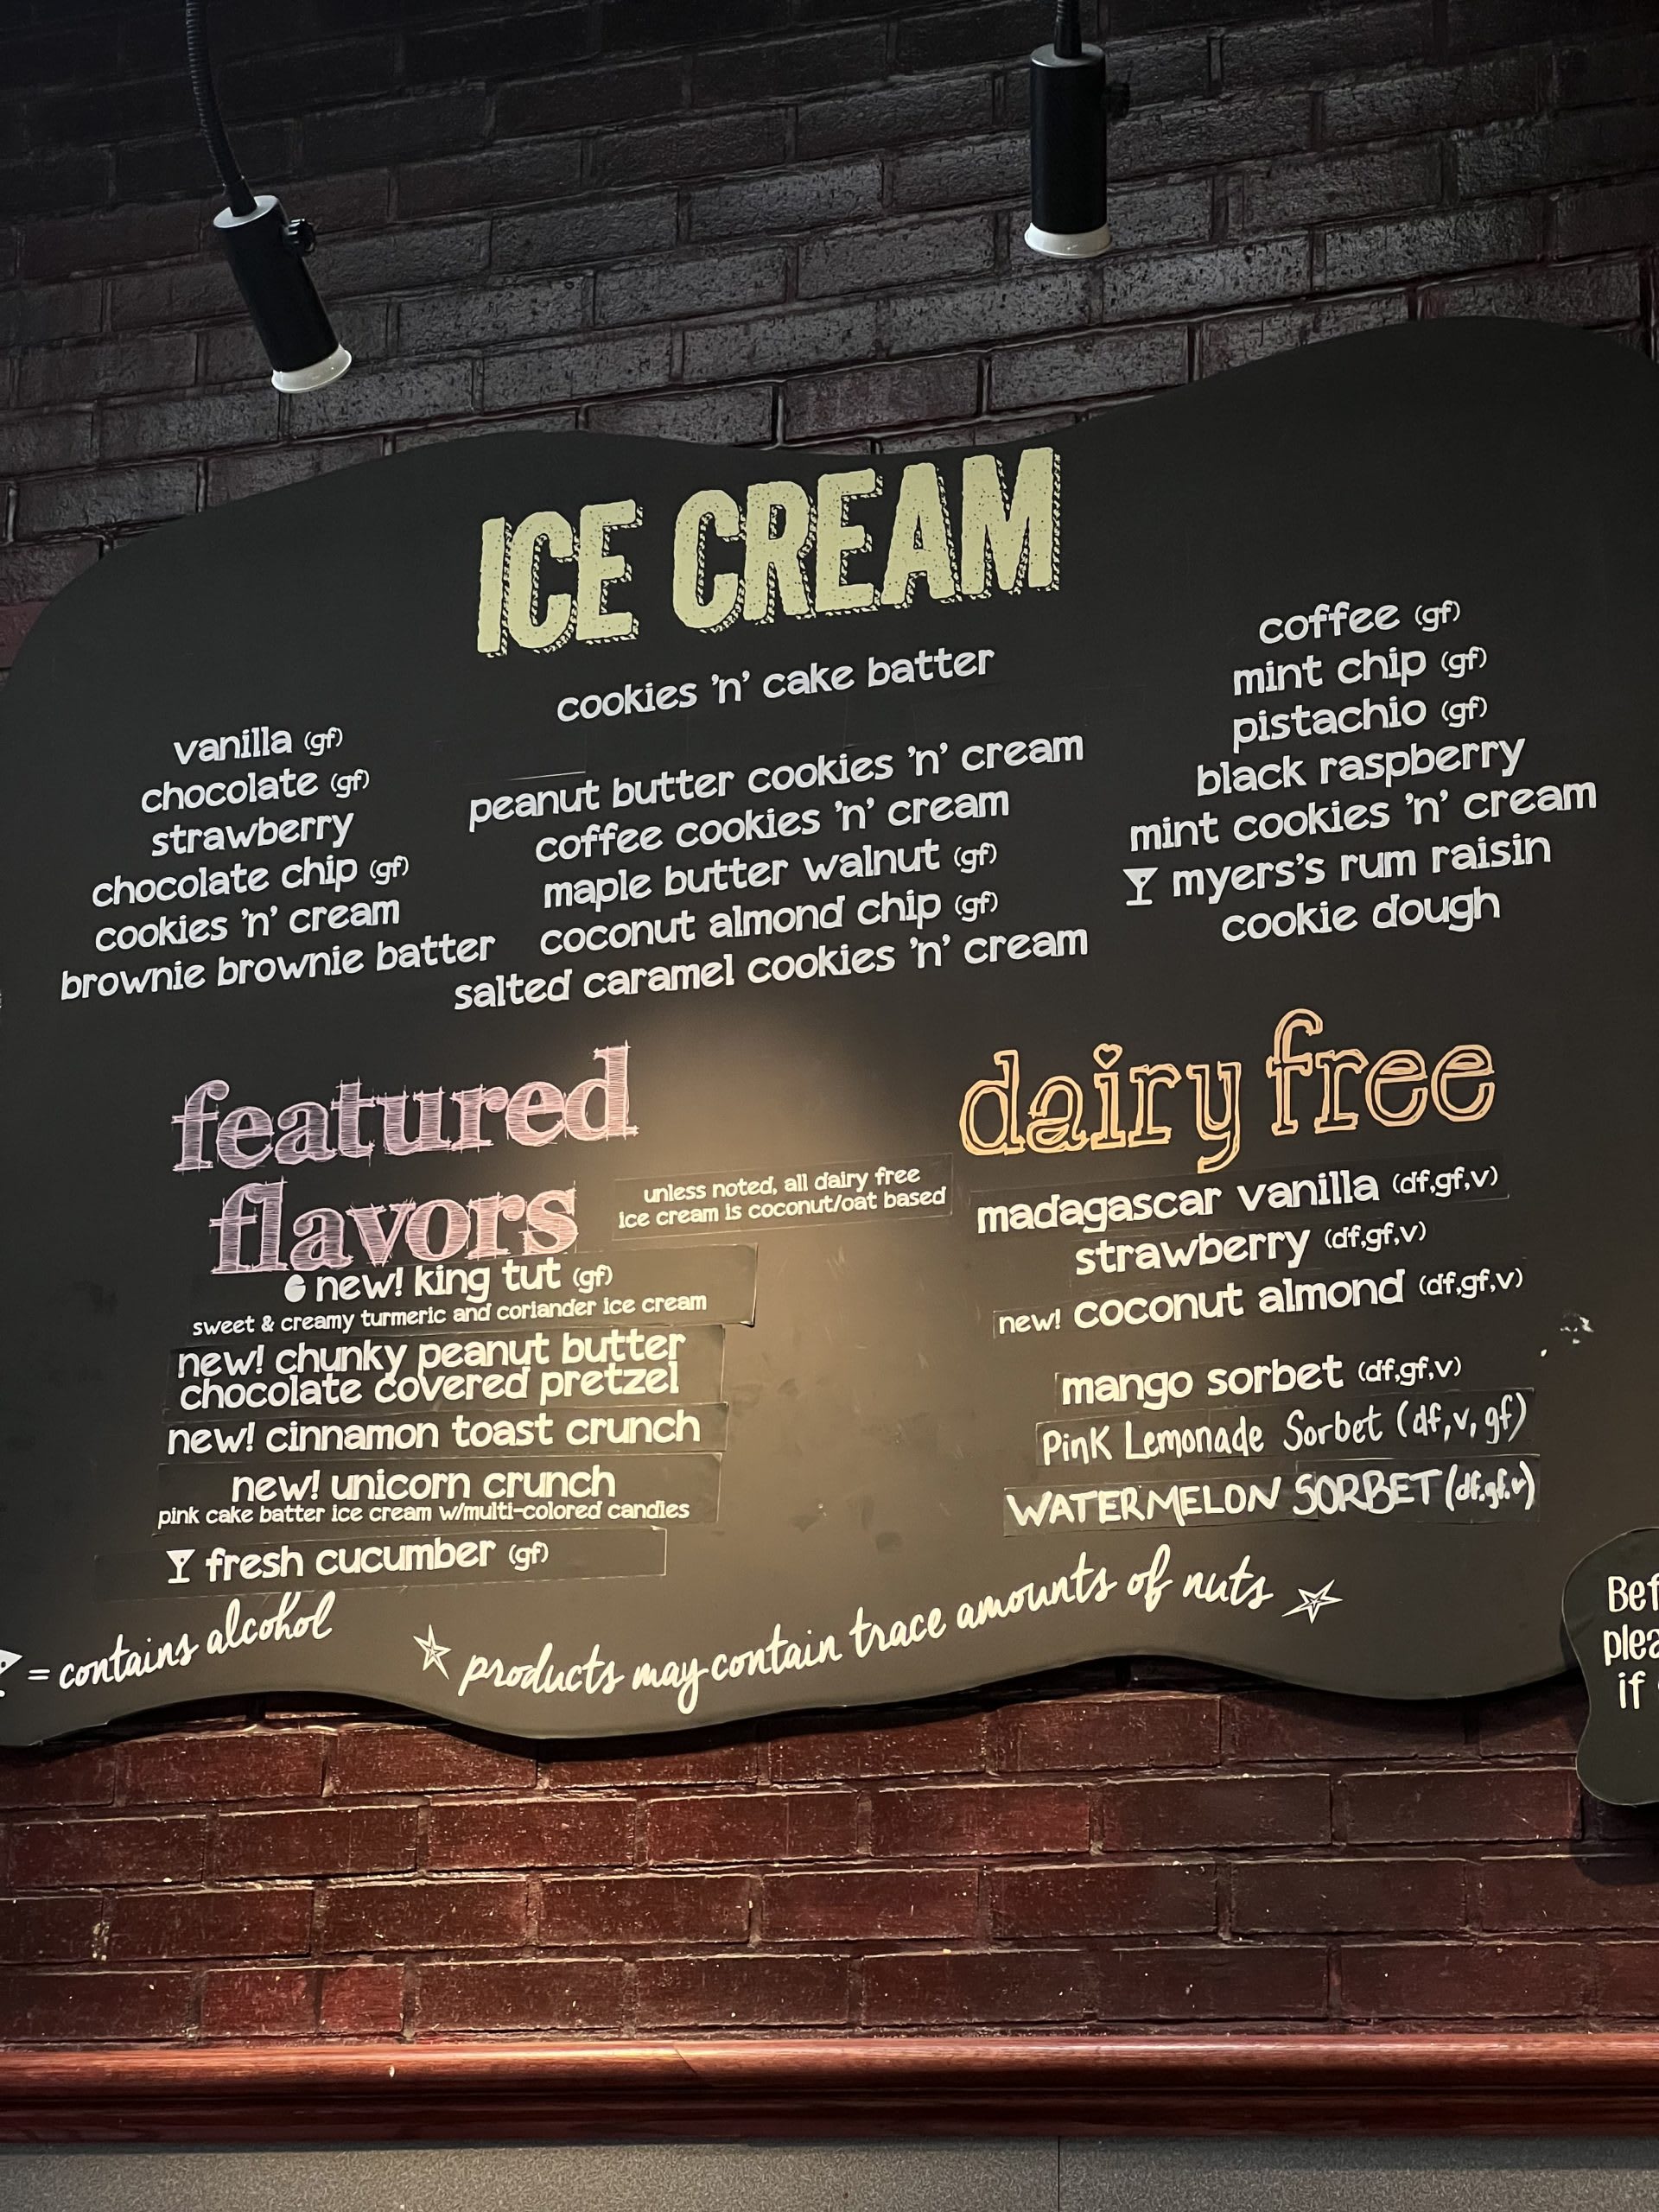 ICE CREAM
vanilla (gf)
chocolate (gf)
strawberry
chocolate chip (gf)
cookies 'n' cream
brownie brownie batter
cookies 'n' cake batter
peanut butter cookies 'n' cream
coffee cookies 'n' cream
maple butter walnut (gf)
coconut almond chip (gf)
salted caramel cookies 'n' cream
coffee (gf)
mint chip (gf)
pistachio (gf)
black raspberry
mint cookies 'n' cream
myers's rum raisin
cookie dough
featured
flavors
new! king tut (gf)
sweet & creamy turmeric and coriander ice cream
new! chunky peanut butter
chocolate covered pretzel
new! cinnamon toast crunch
new! unicorn crunch
pink cake batter ice cream w/multi-colored candies
fresh cucumber (gf)
unless noted, all dairy free
ice cream is coconut/oat based
dairy free
madagascar vanilla (df,gf,v)
strawberry (df,gf,v)
new! coconut almond (df,gf,v)
mango sorbet (df,gf,v)
Pink Lemonade Sorbet (df, v, gf)
WATERMELON SORBET (df,gf,v)
= contains alcohol
products may contain trace amounts of nuts
Bef
plea
if